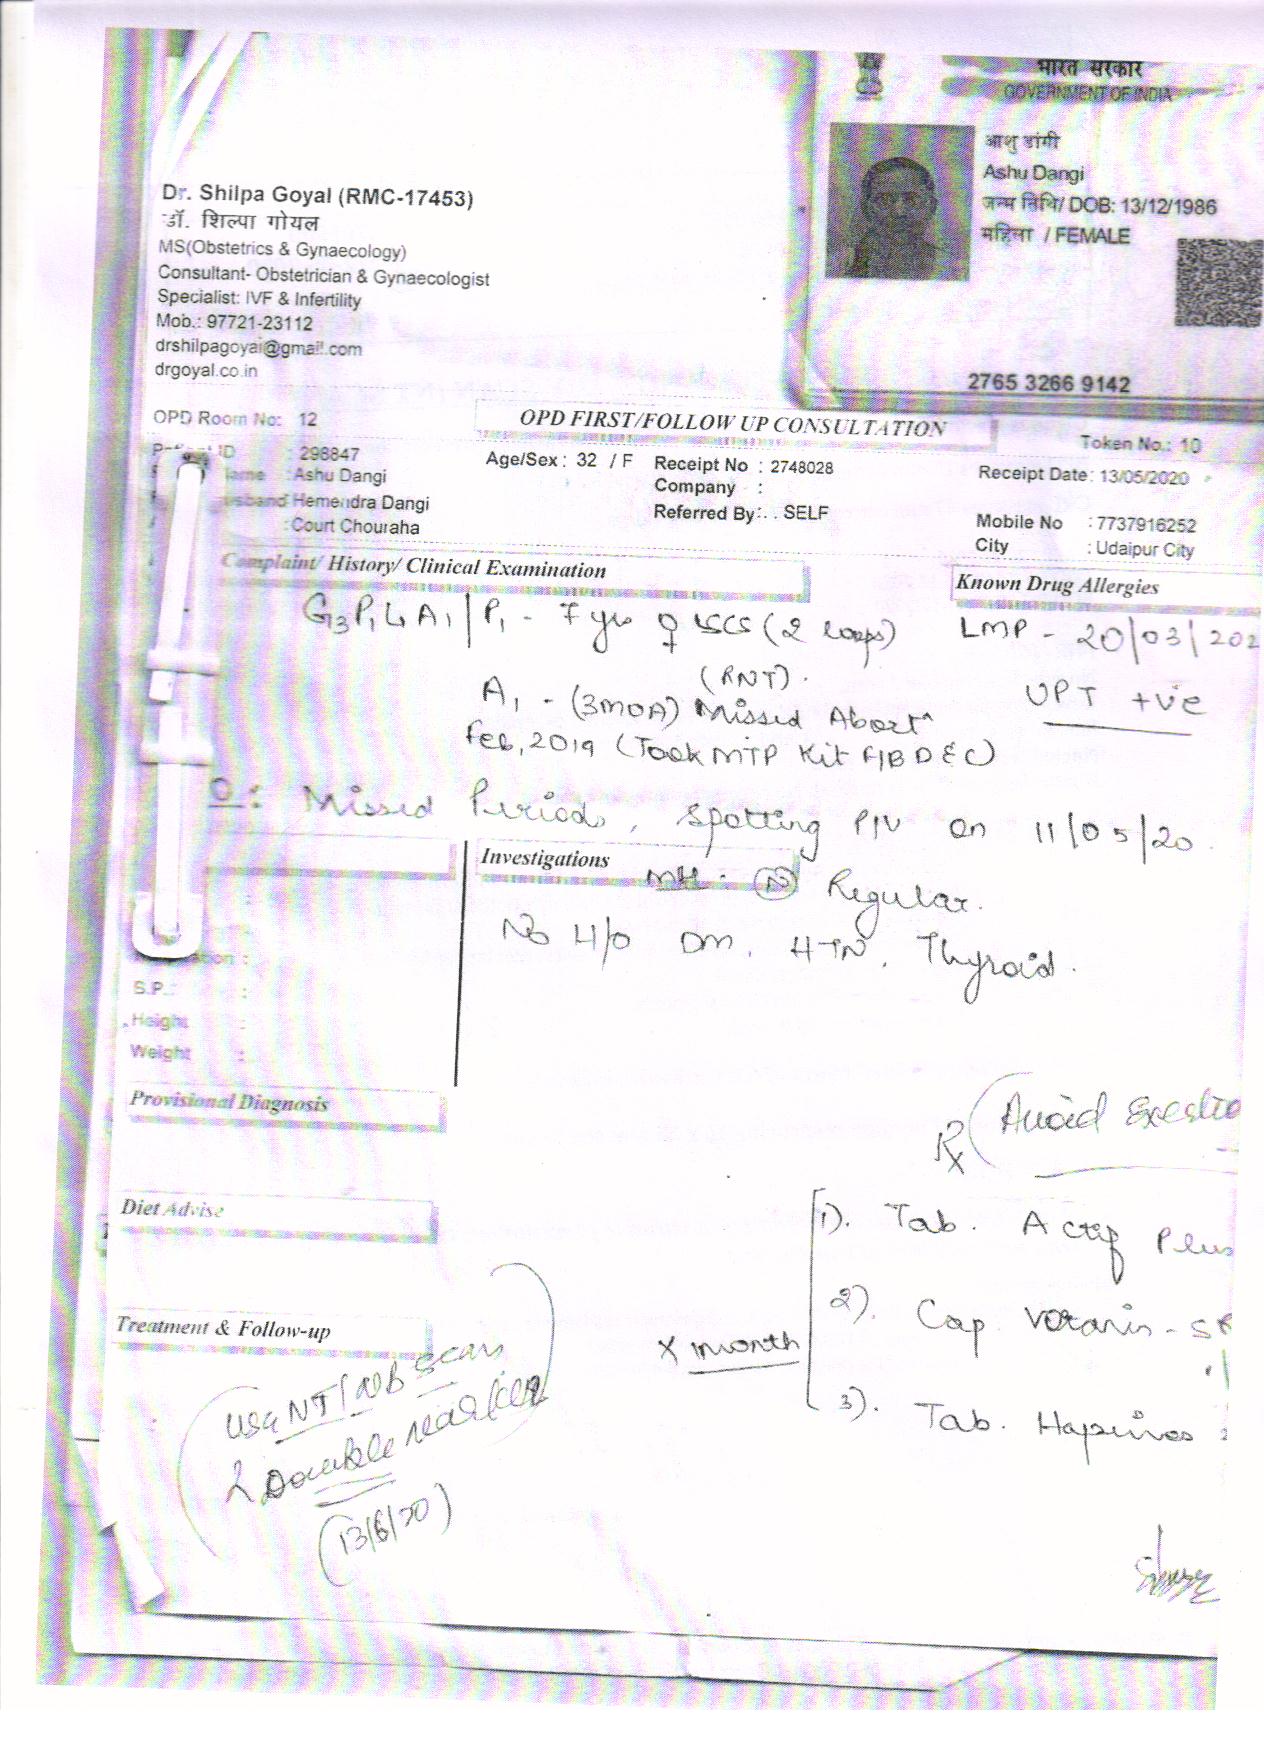 भारत सरकार
GOVERNMENT OF INDIA
आशु डांगी
Ashu Dangi
जन्म तिथि/ DOB: 13/12/1986
महिला / FEMALE
2765 3266 9142
Dr. Shilpa Goyal (RMC-17453)
डॉ. शिल्पा गोयल
MS(Obstetrics & Gynaecology)
Consultant- Obstetrician & Gynaecologist
Specialist: IVF & Infertility
Mob.: 97721-23112
drshilpagoyal@gmail.com
drgoyal.co.in
OPD Room No: 12
OPD FIRST/FOLLOW UP CONSULTATION
Token No.: 10
ID : 298847
Age/Sex : 32 / F
Receipt No : 2748028
Receipt Date: 13/05/2020
ame : Ashu Dangi
Company :
usband Hemendra Dangi
Referred By: . . SELF
Mobile No : 7737916252
: Court Chouraha
City : Udaipur City
Complaint/ History/ Clinical Examination
Known Drug Allergies
G3P1L1A1 | P1 - 7 yr ♀ LSCS (2 loops)
LMP - 20/03/202
(RNT).
UPT +ve
A1 - (3MOA) Missed Abort^
Feb, 2019 (Took MTP Kit F/B D&C)
O: Missed Periods, Spotting P/V on 11/05/20.
Investigations
MH: (N) Regular.
No H/O DM, HTN, Thyroid.
ation :
S.P.: :
Height :
Weight :
Provisional Diagnosis
Rx
Avoid
Diet Advise
1). Tab. Plus
2). Cap
Treatment & Follow-up
x month
3). Tab.
USG NT/NB Scan
Double Marker
(13/6/20)